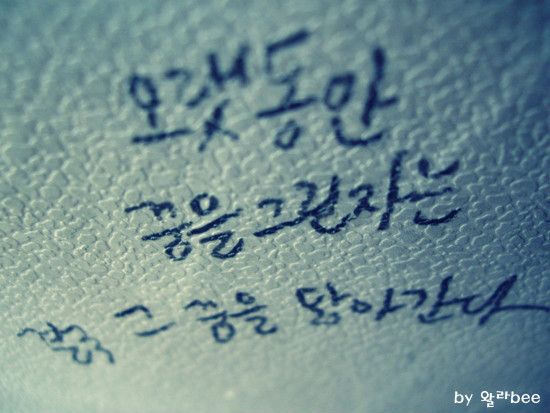 오랫동안
꿈을 그린자는
그 꿈을 닮아간다
by 왈라bee